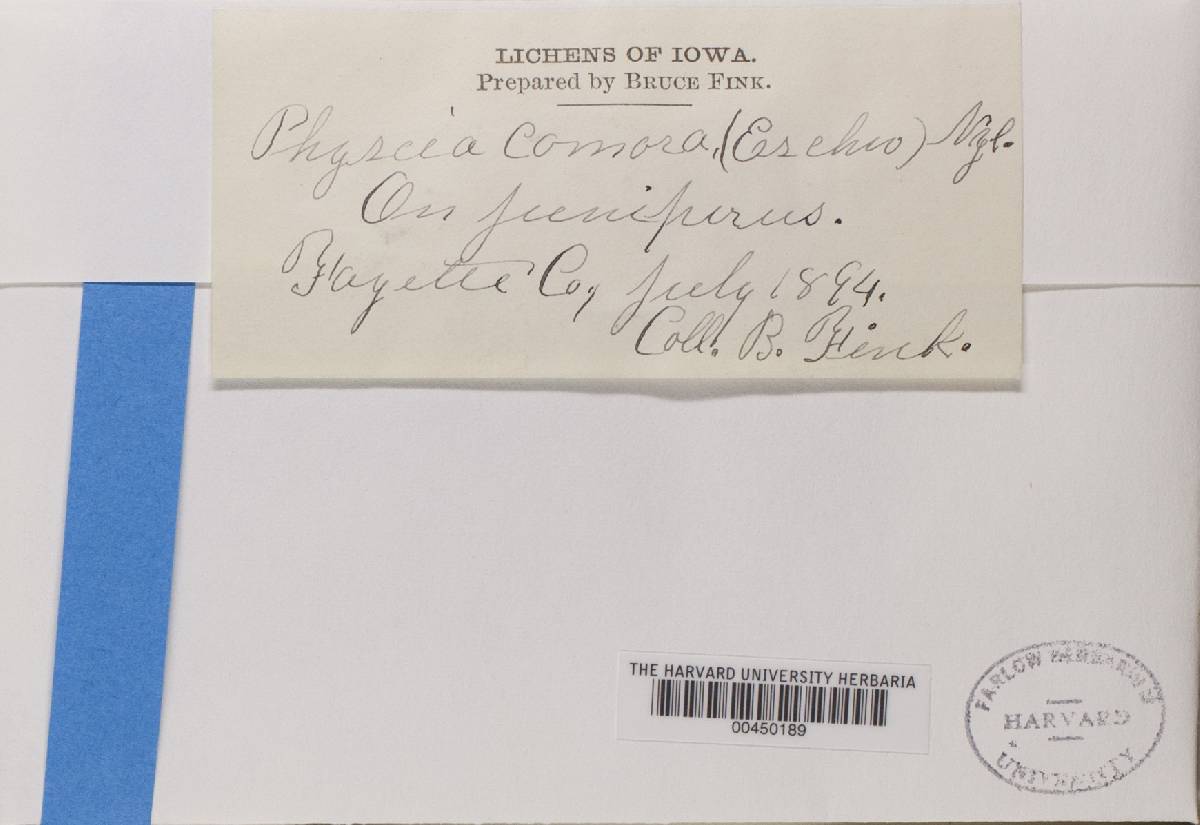 LICHENS OF IOWA.
Prepared by BRUCE FINK.
Physcia comosa, (Eschw) Nyl.
On juniperus.
Fayette Co, July 1894.
Coll. B. Fink.
THE HARVARD UNIVERSITY HERBARIA
00450189
FARLOW HERBARIUM
HARVARD
UNIVERSITY